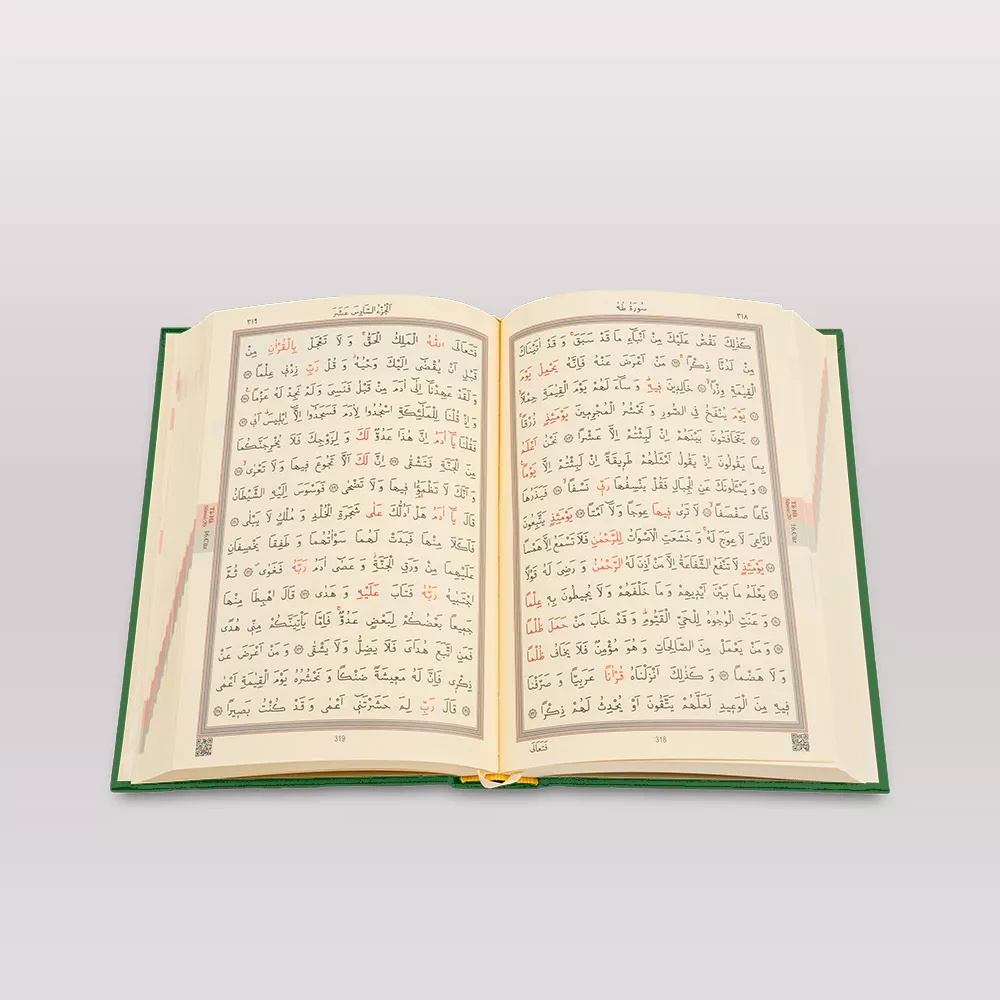 سُورَةُ طٰهٰ
٣١٨
كَذٰلِكَ نَقُصُّ عَلَيْكَ مِنْ اَنْبَٓاءِ مَا قَدْ سَبَقَۚ وَ قَدْ اٰتَيْنَاكَ
مِنْ لَدُنَّا ذِكْرًاۚ مَنْ اَعْرَضَ عَنْهُ فَاِنَّهُ يَحْمِلُ يَوْمَ
الْقِيٰمَةِ وِزْرًاۙ خَالِدٖينَ فٖيهِؕ وَ سَٓاءَ لَهُمْ يَوْمَ الْقِيٰمَةِ حِمْلًاۙ
يَوْمَ يُنْفَخُ فِى الصُّورِ وَ نَحْشُرُ الْمُجْرِمٖينَ يَوْمَئِذٍ زُرْقًاۚ
يَتَخَافَتُونَ بَيْنَهُمْ اِنْ لَبِثْتُمْ اِلَّا عَشْرًا نَحْنُ اَعْلَمُ
بِمَا يَقُولُونَ اِذْ يَقُولُ اَمْثَلُهُمْ طَرٖيقَةً اِنْ لَبِثْتُمْ اِلَّا يَوْمًاۚ
وَ يَسْئَلُونَكَ عَنِ الْجِبَالِ فَقُلْ يَنْسِفُهَا رَبّٖى نَسْفًاۙ فَيَذَرُهَا
قَاعًا صَفْصَفًاۙ لَا تَرٰى فٖيهَا عِوَجًا وَ لَٓا اَمْتًاؕ يَوْمَئِذٍ يَتَّبِعُونَ
الدَّاعِىَ لَا عِوَجَ لَهُۚ وَ خَشَعَتِ الْاَصْوَاتُ لِلرَّحْمٰنِ فَلَا تَسْمَعُ اِلَّا هَمْسًا
يَوْمَئِذٍ لَا تَنْفَعُ الشَّفَاعَةُ اِلَّا مَنْ اَذِنَ لَهُ الرَّحْمٰنُ وَ رَضِىَ لَهُ قَوْلًا
يَعْلَمُ مَا بَيْنَ اَيْدٖيهِمْ وَ مَا خَلْفَهُمْ وَ لَا يُحٖيطُونَ بِهٖ عِلْمًا
وَ عَنَتِ الْوُجُوهُ لِلْحَىِّ الْقَيُّومِؕ وَ قَدْ خَابَ مَنْ حَمَلَ ظُلْمًا
وَ مَنْ يَعْمَلْ مِنَ الصَّالِحَاتِ وَ هُوَ مُؤْمِنٌ فَلَا يَخَافُ ظُلْمًا
وَ لَا هَضْمًا وَ كَذٰلِكَ اَنْزَلْنَاهُ قُرْاٰنًا عَرَبِيًّا وَ صَرَّفْنَا
فٖيهِ مِنَ الْوَعٖيدِ لَعَلَّهُمْ يَتَّقُونَ اَوْ يُحْدِثُ لَهُمْ ذِكْرًا
318
فَتَعَالَى
Tâ-Hâ
16.Cüz
اَلْجُزْءُ السَّادِسَ عَشَرَ
٣١٩
فَتَعَالَى اللّٰهُ الْمَلِكُ الْحَقُّۚ وَ لَا تَعْجَلْ بِالْقُرْاٰنِ مِنْ
قَبْلِ اَنْ يُقْضٰٓى اِلَيْكَ وَحْيُهُؗ وَ قُلْ رَبِّ زِدْنٖى عِلْمًا
وَ لَقَدْ عَهِدْنَٓا اِلٰٓى اٰدَمَ مِنْ قَبْلُ فَنَسِىَ وَ لَمْ نَجِدْ لَهُ عَزْمًا
وَ اِذْ قُلْنَا لِلْمَلٰٓئِكَةِ اسْجُدُوا لِاٰدَمَ فَسَجَدُٓوا اِلَّٓا اِبْلٖيسَؕ اَبٰى
فَقُلْنَا يَٓا اٰدَمُ اِنَّ هٰذَا عَدُوٌّ لَكَ وَ لِزَوْجِكَ فَلَا يُخْرِجَنَّكُمَا
مِنَ الْجَنَّةِ فَتَشْقٰى اِنَّ لَكَ اَلَّا تَجُوعَ فٖيهَا وَ لَا تَعْرٰىۙ
وَ اَنَّكَ لَا تَظْمَؤُا فٖيهَا وَ لَا تَضْحٰى فَوَسْوَسَ اِلَيْهِ الشَّيْطَانُ
قَالَ يَٓا اٰدَمُ هَلْ اَدُلُّكَ عَلٰى شَجَرَةِ الْخُلْدِ وَ مُلْكٍ لَا يَبْلٰى
فَاَكَلَا مِنْهَا فَبَدَتْ لَهُمَا سَوْاٰتُهُمَا وَ طَفِقَا يَخْصِفَانِ
عَلَيْهِمَا مِنْ وَرَقِ الْجَنَّةِؗ وَ عَصٰٓى اٰدَمُ رَبَّهُ فَغَوٰى ثُمَّ
اجْتَبٰيهُ رَبُّهُ فَتَابَ عَلَيْهِ وَ هَدٰى قَالَ اهْبِطَا مِنْهَا
جَمٖيعًا بَعْضُكُمْ لِبَعْضٍ عَدُوٌّۚ فَاِمَّا يَاْتِيَنَّكُمْ مِنّٖى هُدًى
فَمَنِ اتَّبَعَ هُدَاىَ فَلَا يَضِلُّ وَ لَا يَشْقٰى وَ مَنْ اَعْرَضَ عَنْ
ذِكْرٖى فَاِنَّ لَهُ مَعٖيشَةً ضَنْكًا وَ نَحْشُرُهُ يَوْمَ الْقِيٰمَةِ اَعْمٰى
قَالَ رَبِّ لِمَ حَشَرْتَنٖٓى اَعْمٰى وَ قَدْ كُنْتُ بَصٖيرًا
319
Tâ-Hâ
16.Cüz